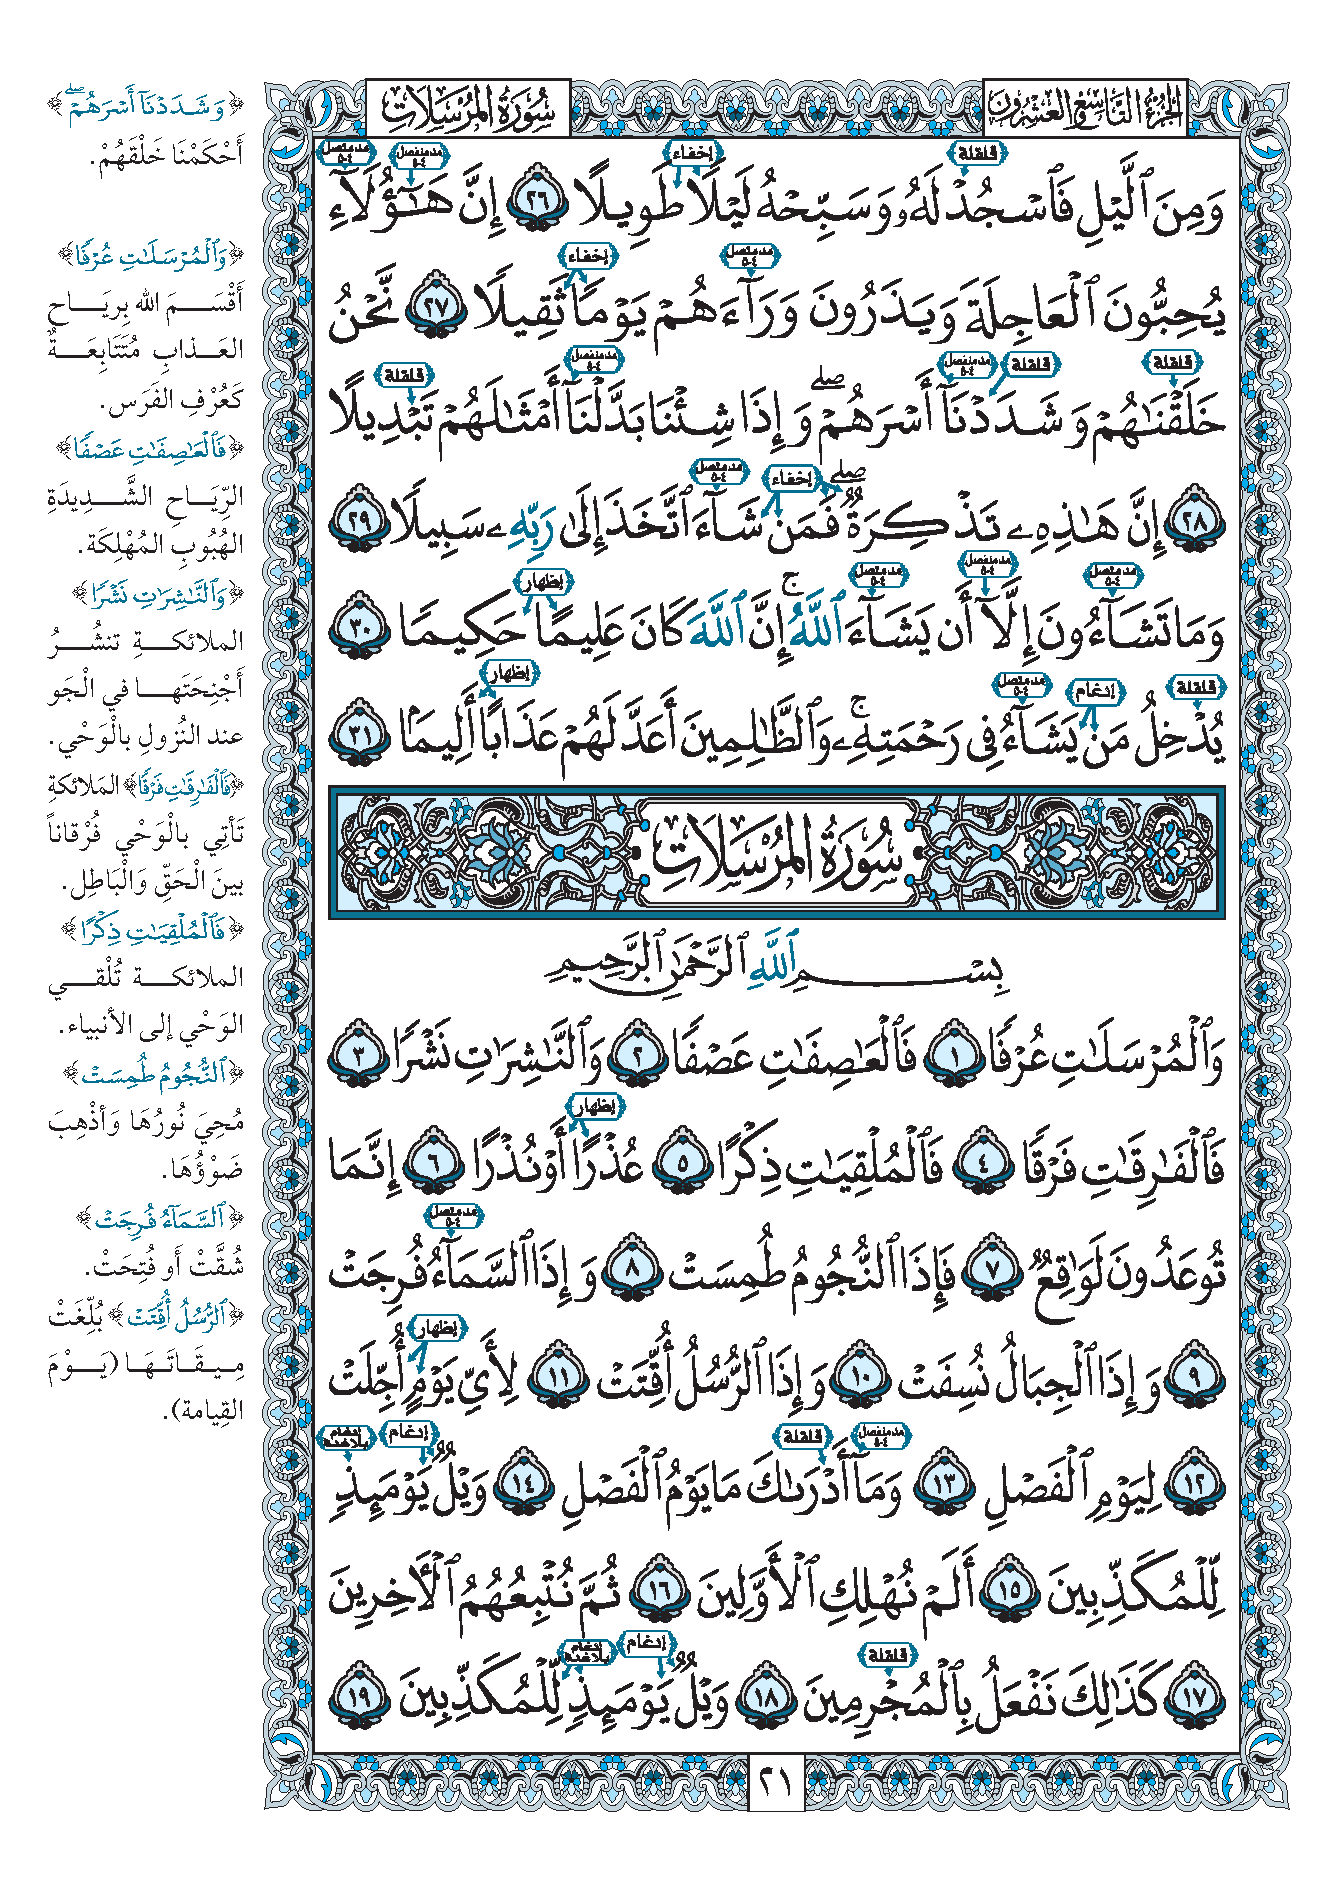 الجزء التاسع والعشرون
سورة المرسلات
وَمِنَ ٱلَّيْلِ فَٱسْجُدْ لَهُۥ وَسَبِّحْهُ لَيْلًا طَوِيلًا ٢٦ إِنَّ هَـٰٓؤُلَآءِ
يُحِبُّونَ ٱلْعَاجِلَةَ وَيَذَرُونَ وَرَآءَهُمْ يَوْمًا ثَقِيلًا ٢٧ نَّحْنُ
خَلَقْنَـٰهُمْ وَشَدَدْنَآ أَسْرَهُمْ ۖ وَإِذَا شِئْنَا بَدَّلْنَآ أَمْثَـٰلَهُمْ تَبْدِيلًا
٢٨ إِنَّ هَـٰذِهِۦ تَذْكِرَةٌ ۖ فَمَن شَآءَ ٱتَّخَذَ إِلَىٰ رَبِّهِۦ سَبِيلًا ٢٩
وَمَا تَشَآءُونَ إِلَّآ أَن يَشَآءَ ٱللَّهُ ۚ إِنَّ ٱللَّهَ كَانَ عَلِيمًا حَكِيمًا ٣٠
يُدْخِلُ مَن يَشَآءُ فِى رَحْمَتِهِۦ ۚ وَٱلظَّـٰلِمِينَ أَعَدَّ لَهُمْ عَذَابًا أَلِيمًۢا ٣١
سورة المرسلات
بِسْمِ ٱللَّهِ ٱلرَّحْمَـٰنِ ٱلرَّحِيمِ
وَٱلْمُرْسَلَـٰتِ عُرْفًا ١ فَٱلْعَـٰصِفَـٰتِ عَصْفًا ٢ وَٱلنَّـٰشِرَٰتِ نَشْرًا ٣
فَٱلْفَـٰرِقَـٰتِ فَرْقًا ٤ فَٱلْمُلْقِيَـٰتِ ذِكْرًا ٥ عُذْرًا أَوْ نُذْرًا ٦ إِنَّمَا
تُوعَدُونَ لَوَٰقِعٌ ٧ فَإِذَا ٱلنُّجُومُ طُمِسَتْ ٨ وَإِذَا ٱلسَّمَآءُ فُرِجَتْ
٩ وَإِذَا ٱلْجِبَالُ نُسِفَتْ ١٠ وَإِذَا ٱلرُّسُلُ أُقِّتَتْ ١١ لِأَىِّ يَوْمٍ أُجِّلَتْ
١٢ لِيَوْمِ ٱلْفَصْلِ ١٣ وَمَآ أَدْرَىٰكَ مَا يَوْمُ ٱلْفَصْلِ ١٤ وَيْلٌ يَوْمَئِذٍ
لِّلْمُكَذِّبِينَ ١٥ أَلَمْ نُهْلِكِ ٱلْأَوَّلِينَ ١٦ ثُمَّ نُتْبِعُهُمُ ٱلْـَٔاخِرِينَ
١٧ كَذَٰلِكَ نَفْعَلُ بِٱلْمُجْرِمِينَ ١٨ وَيْلٌ يَوْمَئِذٍ لِّلْمُكَذِّبِينَ ١٩
٢١
﴿وَشَدَدْنَآ أَسْرَهُمْ ۖ﴾
أَحْكَمْنَا خَلْقَهُمْ.
﴿وَٱلْمُرْسَلَـٰتِ عُرْفًا﴾
أَقْسَمَ الله بِرِيَاحِ
العَذابِ مُتَتَابِعَةً
كَعُرْفِ الفَرَسِ.
﴿فَٱلْعَـٰصِفَـٰتِ عَصْفًا﴾
الرِّيَاحِ الشَّدِيدَةِ
الهُبُوبِ المُهْلِكَةِ.
﴿وَٱلنَّـٰشِرَٰتِ نَشْرًا﴾
الملائكةِ تنشُرُ
أَجْنِحَتَها في الْجَو
عند النُزولِ بالْوَحْي.
﴿فَٱلْفَـٰرِقَـٰتِ فَرْقًا﴾ المَلائكةِ
تَأتِي بالْوَحْي فُرْقاناً
بينَ الْحَقِّ وَالْبَاطِلِ.
﴿فَٱلْمُلْقِيَـٰتِ ذِكْرًا﴾
الملائكة تُلْقي
الوَحْي إلى الأنبياء.
﴿ٱلنُّجُومُ طُمِسَتْ﴾
مُحِيَ نُورُهَا وَأذْهِبَ
ضَوْؤُهَا.
﴿ٱلسَّمَآءُ فُرِجَتْ﴾
شُقَّتْ أَو فُتِحَتْ.
﴿ٱلرُّسُلُ أُقِّتَتْ﴾ بُلِّغَتْ
مِيقَاتَهَا (يَوْمَ
القِيامة).